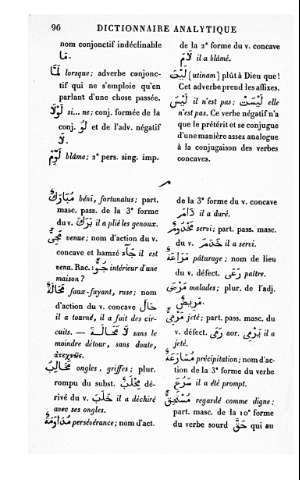 96 DICTIONNAIRE ANALYTIQUE
nom conjonctif indéclinable
مَا
لَمَّا lorsque; adverbe conjonc-
tif qui ne s'emploie qu'en
parlant d'une chose passée.
لَوْلَا si... ne; conj. formée de la
conj. لَوْ et de l'adv. négatif
لَا.
لَوْمٌ blâme; 2e pers. sing. imp.
de la 2e forme du v. concave
لَامَ il a blâmé.
لَيْتَ [utinam] plût à Dieu que!
Cet adverbe prend les affixes.
لَيْسَ il n'est pas; لَيْسَتْ elle
n'est pas. Ce verbe négatif n'a
que le prétérit et se conjugue
d'une manière assez analogue
à la conjugaison des verbes
concaves.
م
مُبَارَكٌ béni, fortunatus; part.
masc. pass. de la 3e forme
du v. بَرَكَ il a plié les genoux.
venue; nom d'action du v.
concave et hamzé جَاءَ il est
venu. Rac.: intérieur d'une
maison?
مَحَالَةٌ faux-fuyant, ruse; nom
d'action du v. concave حَالَ
il a tourné, il a fait des cir-
cuits. — لَا مَحَالَةَ sans le
moindre détour, sans doute,
مَخَالِبُ ongles, griffes; plur.
rompu du subst. مِخْلَبٌ dé-
rivé du v. خَلَبَ il a déchiré
avec ses ongles.
مُدَاوَمَةٌ persévérance; nom d'act.
de la 3e forme du v. concave
دَامَ il a duré.
مَخْدُومٌ servi; part. pass. masc.
du v. خَدَمَ il a servi.
pâturage; nom de lieu
du v. défect. رَعَى paître.
مَرْضَى malades; plur. de l'adj.
مَرِيضٌ.
jeté; part. pass. masc. du
v. défect. رَمَى aor. يَرْمِي il a
jeté.
مُسَارَعَةٌ précipitation; nom d'ac-
tion de la 3e forme du verbe
سَرُعَ il a été prompt.
مُسْتَحِقٌّ regardé comme digne;
part. masc. de la 10e forme
du verbe sourd حَقَّ qui au